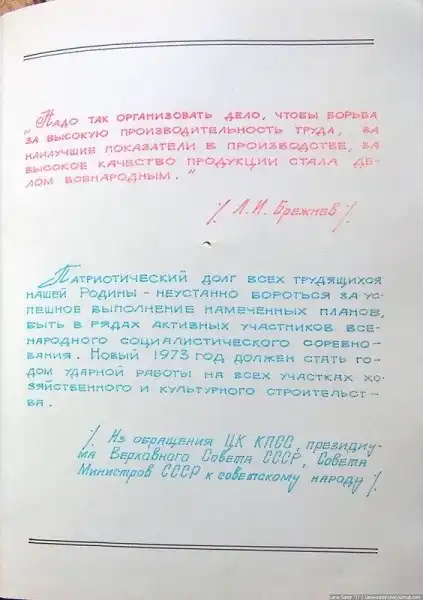 "Надо так организовать дело, чтобы борьба
за высокую производительность труда, за
наилучшие показатели в производстве, за
высокое качество продукции стала де-
лом всенародным."
/. Л.И. Брежнев /.
Патриотический долг всех трудящихся
нашей Родины - неустанно бороться за ус-
пешное выполнение намеченных планов,
быть в рядах активных участников все-
народного социалистического соревно-
вания. Новый 1973 год должен стать го-
дом ударной работы на всех участках хо-
зяйственного и культурного строительст-
ва.
/. Из обращения ЦК КПСС, президиу-
ма Верховного Совета СССР, Совета
Министров СССР к советскому народу /.